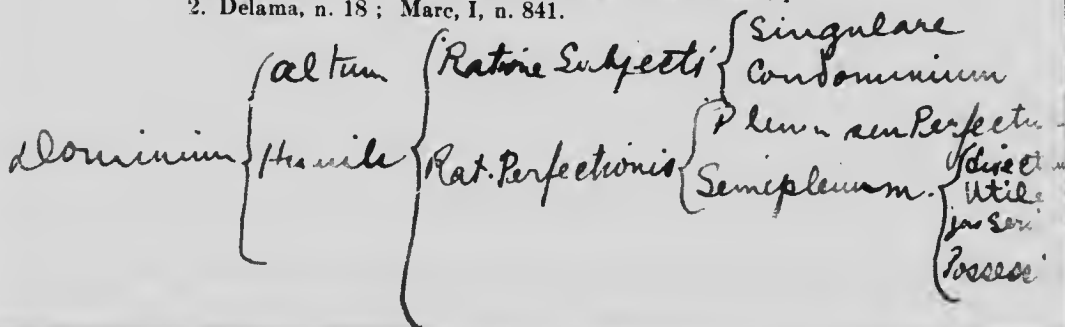 2. Delama, n. 18 ; Marc, I, n. 841.
Dominium
altum
Humile
Ratione Subjecti
Singulare
Condominium
Rat. Perfectionis
Plenum seu Perfectu
Semiplenum.
direct
Utile
jus Ser
Possess